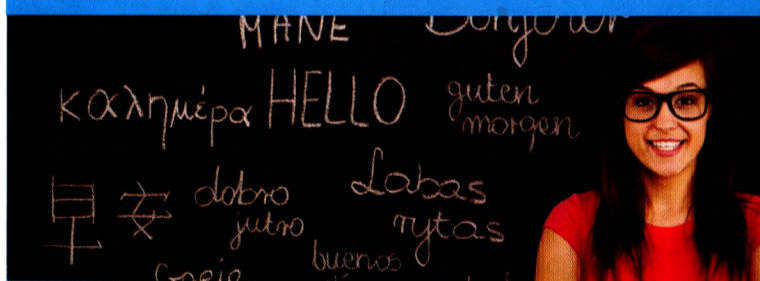 MANE Bonjour
καλημέρα HELLO guten
morgen
早安 dobro
jutro
Labas
rytas
buenos